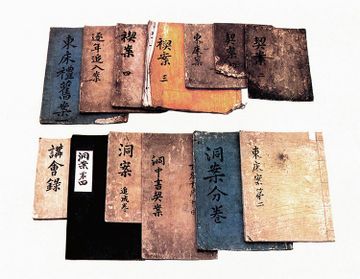 東床禮舊案
逐年追入案
禊案 四
禊案 三
東床案
契案
契案 二
講會錄
洞案 第四
洞案
洞中吉契案
洞案分卷
東床案 第二